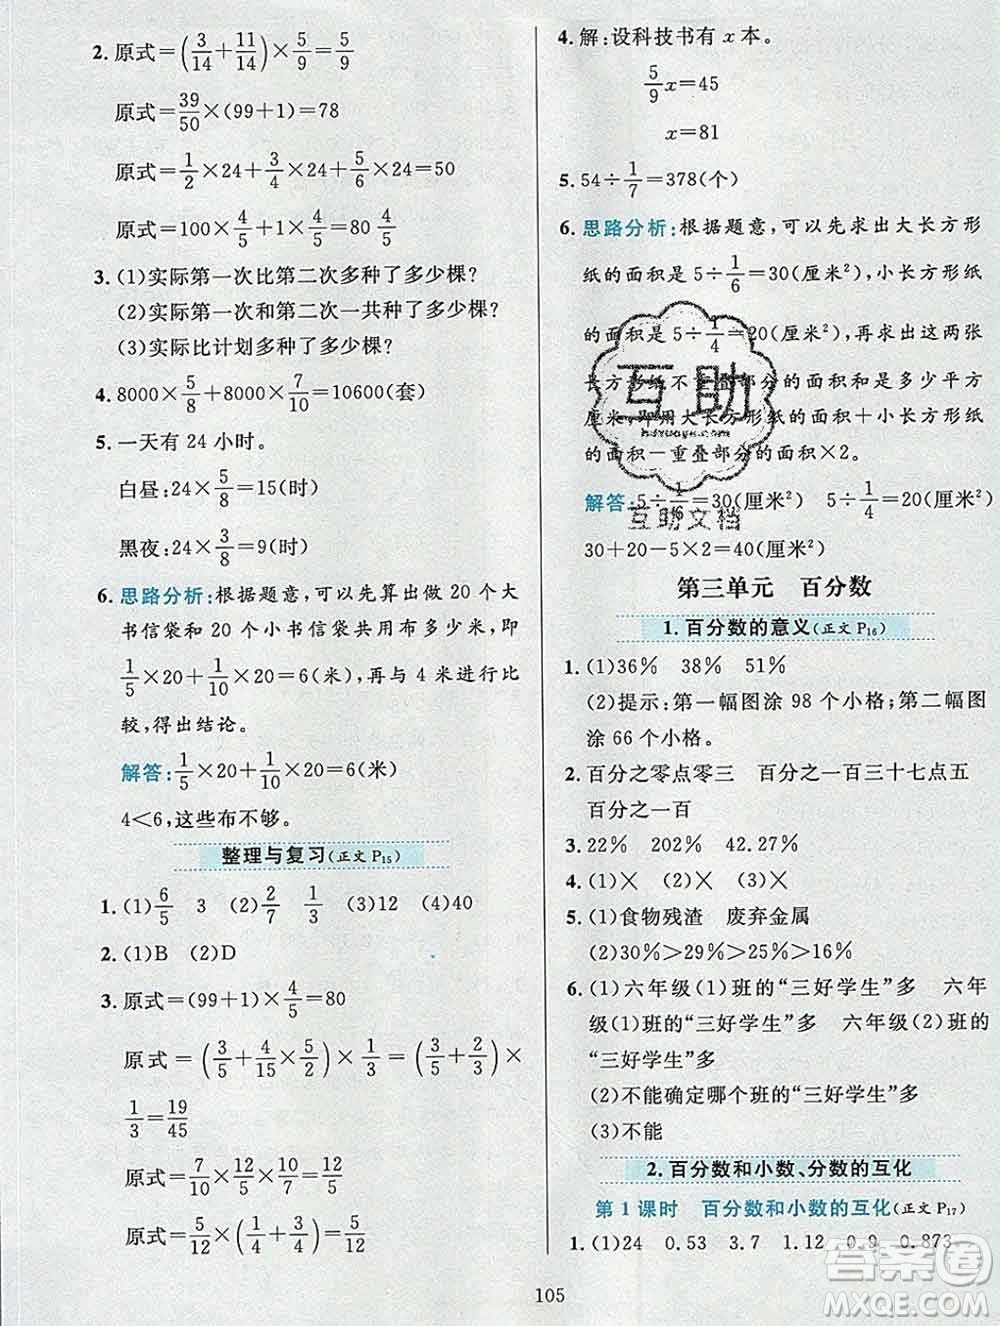 2. 原式=(3/14+11/14)×5/9=5/9
原式=39/50×(99+1)=78
原式=1/2×24+3/4×24+5/6×24=50
原式=100×4/5+1×4/5=80 4/5
3. (1)实际第一次比第二次多种了多少棵?
(2)实际第一次和第二次一共种了多少棵?
(3)实际比计划多种了多少棵?
4. 8000×5/8+8000×7/10=10600(套)
5. 一天有 24 小时。
白昼:24×5/8=15(时)
黑夜:24×3/8=9(时)
6. 思路分析:根据题意,可以先算出 20 个大
书信袋和 20 个小书信袋共用布多少米,即
1/5×20+1/10×20=6(米),再与 4 米进行比
较,得出结论。
解答:1/5×20+1/10×20=6(米)
4<6,这些布不够。
整理与复习(正文 P15)
1. (1)6/5 3 (2)2/7 1/3 (3)12 (4)40
2. (1)B (2)D
3. 原式=(99+1)×4/5=80
原式=(3/5+4/15×5/2)×1/3=(3/5+2/3)×
1/3=19/45
原式=7/10×5/12×12/5=7/10
原式=5/12×4/5+1/4×2/3=1/2
4. 解:设科技书有 x 本。
5/9x=45
x=81
5. 54÷1/7=378(个)
6. 思路分析:根据题意,可以先求出大长方形
纸的面积是 5÷1/6=30(厘米²),小长方形纸
的面积是 5÷1/4=20(厘米²),再求出这两张
长方形纸不重叠部分的面积和是多少平方
厘米,即用大长方形纸的面积+小长方形纸
的面积-重叠部分的面积×2。
解答:5÷1/6=30(厘米²) 5÷1/4=20(厘米²)
30+20-5×2=40(厘米²)
第三单元 百分数
1. 百分数的意义(正文 P16)
1. (1)36% 38% 51%
(2)提示:第一幅图涂 98 个小格;第二幅图
涂 66 个小格。
2. 百分之零点零三 百分之一百三十七点五
百分之一百
3. 22% 202% 42.27%
4. (1)× (2)×
5. (1)食物残渣 废弃金属
(2)30%>29%>25%>16%
6. (1)六年级(1)班的“三好学生”多 六年
级(1)班的“三好学生”多 六年级(2)班的
“三好学生”多
(2)不能确定哪个班的“三好学生”多
(3)不能
2. 百分数和小数、分数的互化
第 1 课时 百分数和小数的互化(正文 P17)
1. (1)24 0.53 3.7 1.12 0.9 0.873
105
互助
互助文档
答案圈
MXQE.COM